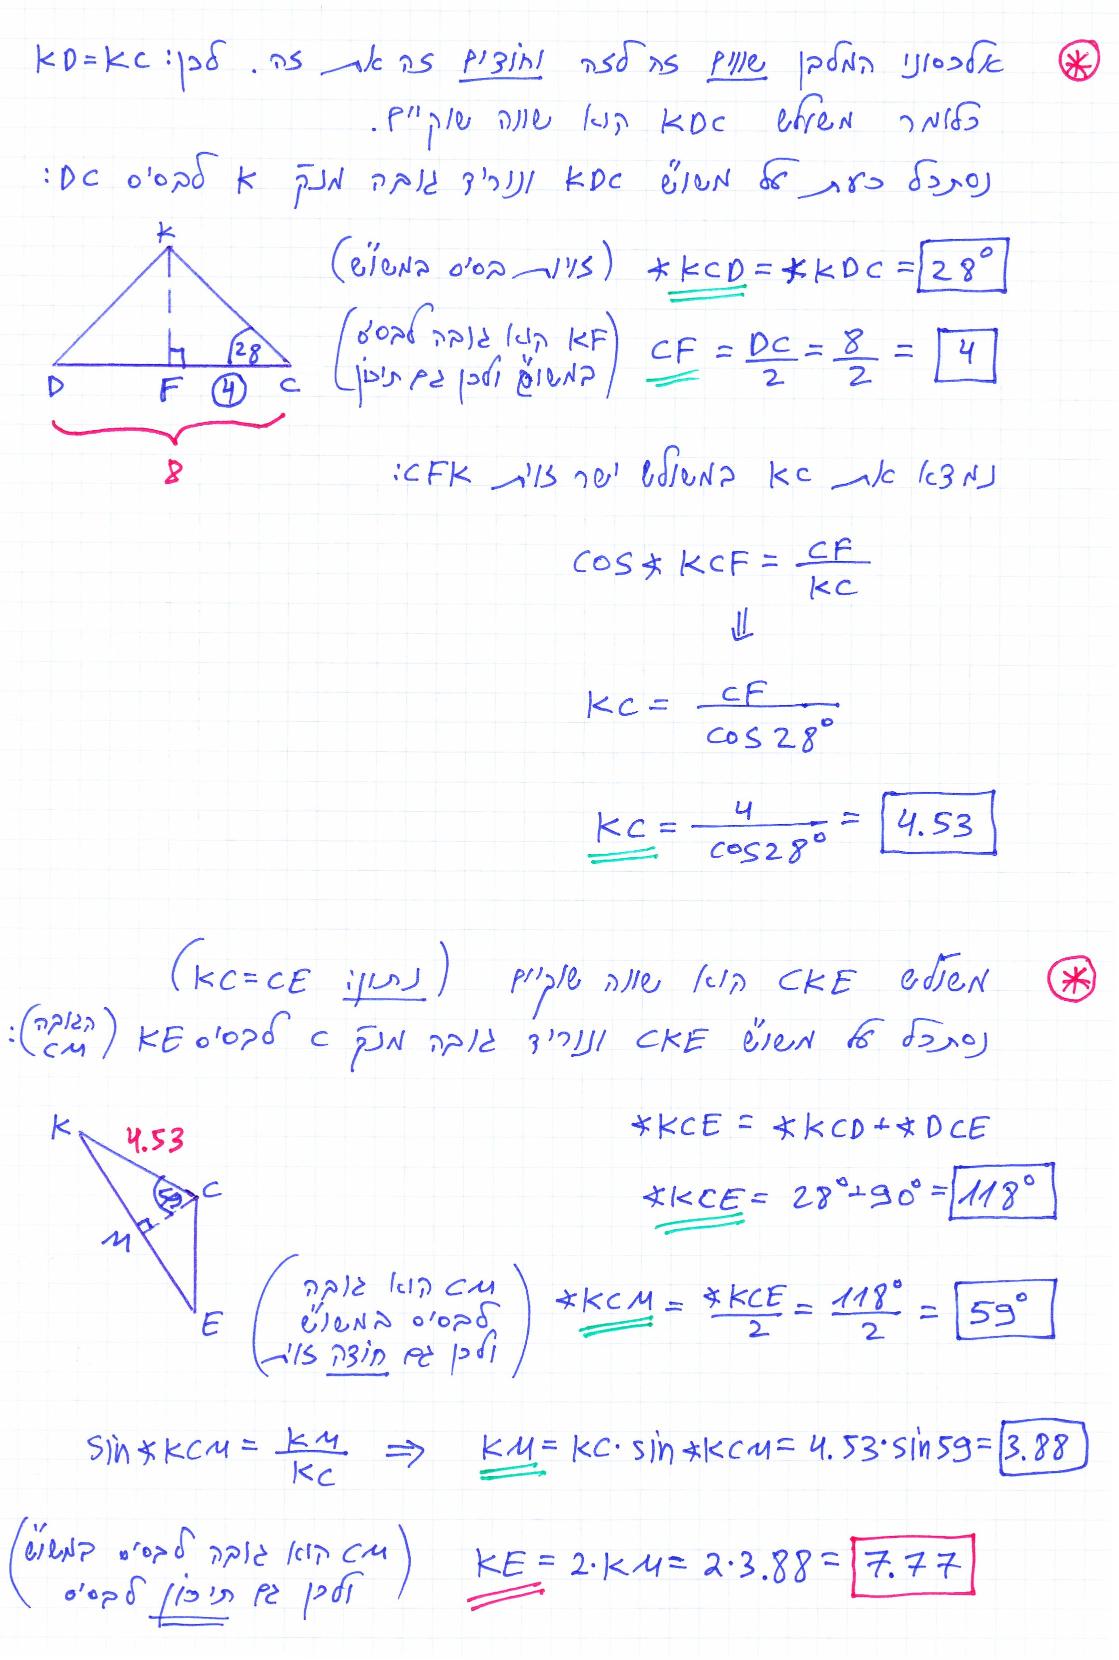 אלכסוני המלבן שווים זה לזה וחוצים זה את זה. לכן: KD=KC
כלומר משולש KDC הוא שווה שוקיים.
נסתכל כעת על משו"ש KDC ונוריד גובה מנק' K לבסיס DC:
K
D F C
28
4
8
∢KCD = ∢KDC = 28° (זויות בסיס במשו"ש)
CF = DC/2 = 8/2 = 4 (KF הוא גובה לבסיס
במשו"ש ולכן גם תיכון)
נמצא את KC במשולש ישר זוית CFK:
cos∢KCF = CF/KC
⇓
KC = CF/cos28°
KC = 4/cos28° = 4.53
משולש CKE הוא שווה שוקיים (נתון: KC=CE)
נסתכל על משו"ש CKE ונוריד גובה מנק' C לבסיס KE (הגובה CM):
K
4.53
59
C
M
E
∢KCE = ∢KCD + ∢DCE
∢KCE = 28°+90° = 118°
∢KCM = ∢KCE/2 = 118°/2 = 59°
(CM הוא גובה
לבסיס במשו"ש
ולכן גם חוצה זוית)
sin∢KCM = KM/KC ⇒ KM = KC·sin∢KCM = 4.53·sin59 = 3.88
KE = 2·KM = 2·3.88 = 7.77
(CM הוא גובה לבסיס במשו"ש
ולכן גם תיכון לבסיס)